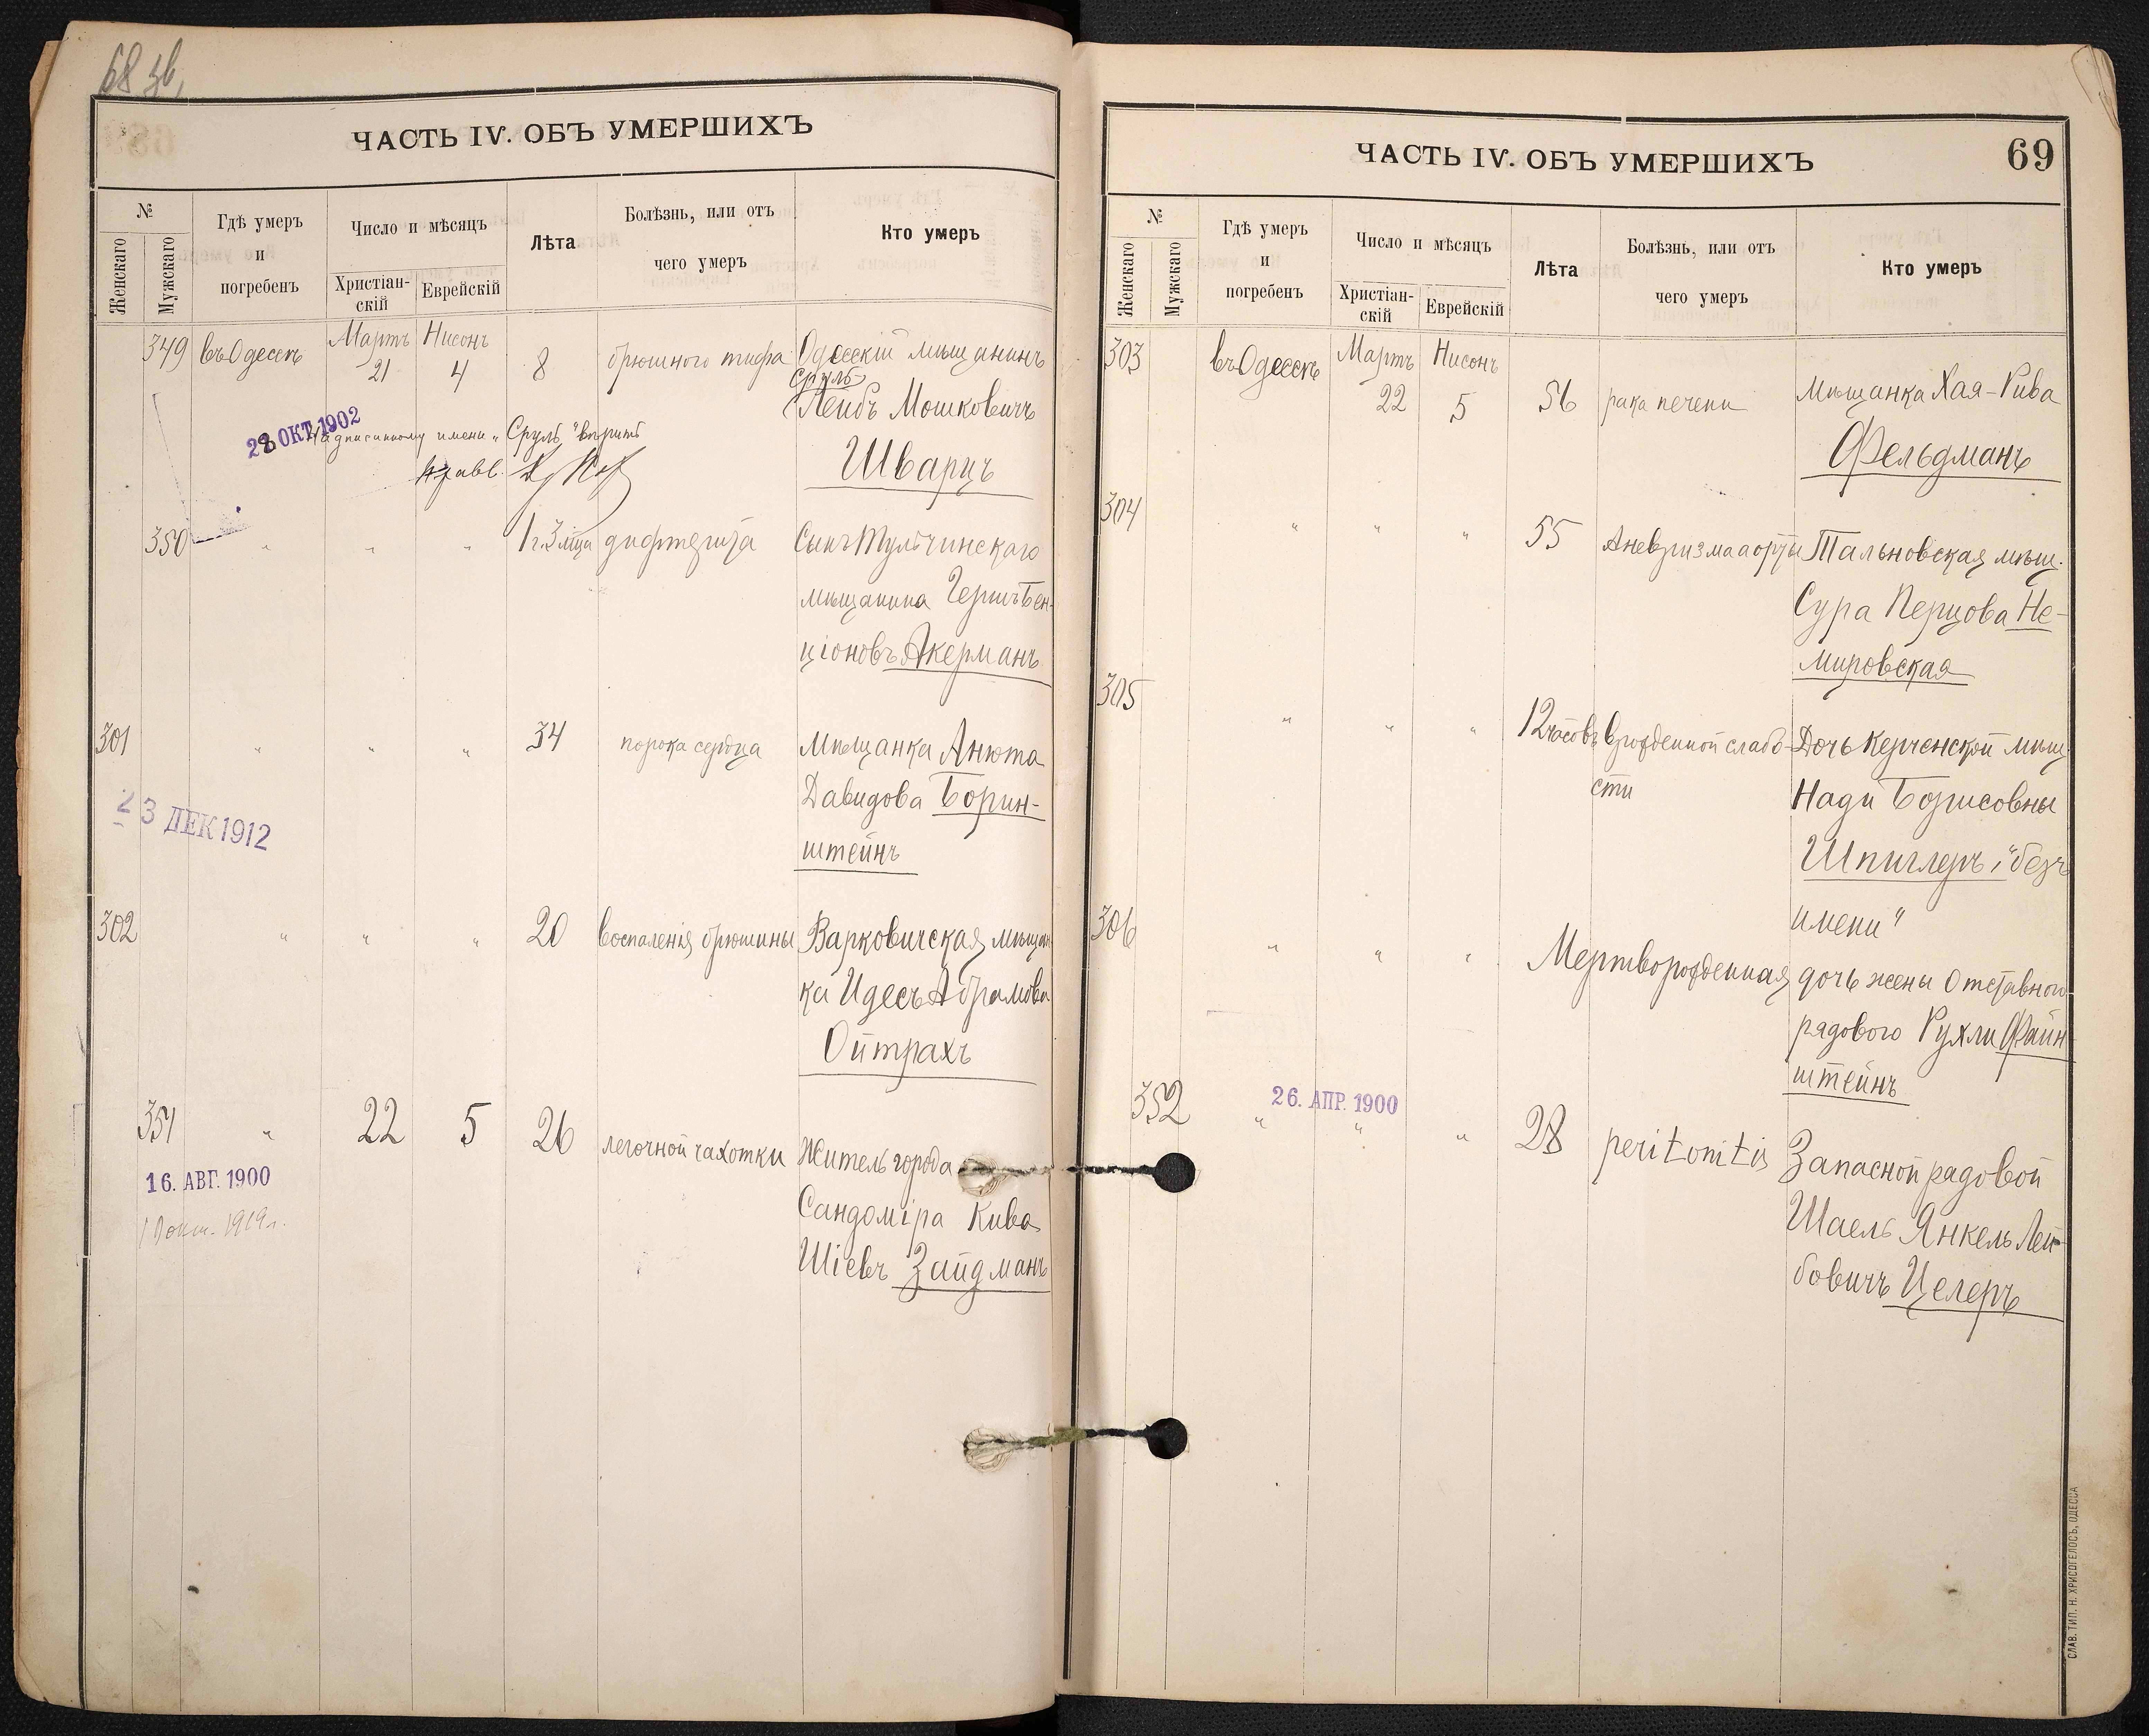 68 зв.
ЧАСТЬ IV. ОБЪ УМЕРШИХЪ
№
Женскаго
Мужскаго
Гдѣ умеръ
и
погребенъ
Число и мѣсяцъ
Христіан-
скій
Еврейскій
Лѣта
Болѣзнь, или отъ
чего умеръ
Кто умеръ
349 въ Одессѣ Мартъ 21 Нисонъ 4 8 брюшного тифа Одесскій мѣщанинъ
Сруль
Лейбъ Мошковичъ
Шварцъ
28 ОКТ. 1902
Надписанному имени „Сруль" вѣрить
350 " " " 1 г. 3 мѣца дифтерита Сынъ Тульчинскаго
мѣщанина Герша Бен-
ціоновъ Акерманъ
301 " " " 34 порока сердца Мѣщанка Анюта
Давидова Борин-
штейнъ
23 ДЕК 1912
302 " " " 20 воспаленія брюшины Варковичская мѣщан
ка Идесъ Абрамова
Ойтрахъ
351 " 22 5 26 легочной чахотки Житель города
Сандоміра Кива
Шіевъ Зайдманъ
16. АВГ. 1900
1919 г.
ЧАСТЬ IV. ОБЪ УМЕРШИХЪ
69
№
Женскаго
Мужскаго
Гдѣ умеръ
и
погребенъ
Число и мѣсяцъ
Христіан-
скій
Еврейскій
Лѣта
Болѣзнь, или отъ
чего умеръ
Кто умеръ
303 въ Одессѣ Мартъ 22 Нисонъ 5 56 рака печени Мѣщанка Хая-Рива
Фельдманъ
304 " " " 55 Аневризма аорты Тальновская мѣщ.
Сура Перцова Не-
мировская
305 " " " 12 часовъ врожденной слабо- Дочь Керченской мѣщ.
сти
Нади Борисовны
Шпиглеръ, "безъ
имени"
306 " " " Мертворожденная дочь жены отставного
рядового Рухли Файн
штейнъ
352 " " " 28 peritonitis Запасной рядовой
26. АПР. 1900
Шаель Янкель Лей-
бовичъ Целеръ
СЛАВ. ТИП. Н. ХРИСОГЕЛОСЪ, ОДЕССА